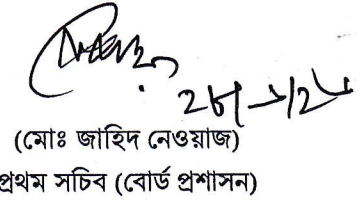 (মোঃ জাহিদ নেওয়াজ)
প্রথম সচিব (বোর্ড প্রশাসন)